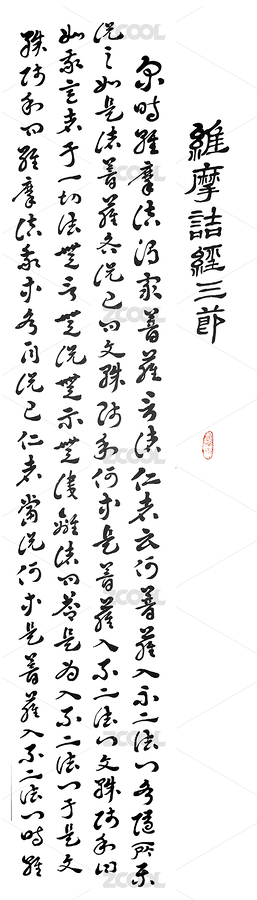 維摩詰經三節
尔時維摩詰謂众菩薩言諸仁者云何菩薩入不二法门各隨所樂
说之如是諸菩薩各说已问文殊师利何等是菩薩入不二法门文殊师利曰
如我意者于一切法無言無说無示無识離諸问答是为入不二法门于是文
殊师利问維摩詰我等各自说已仁者當说何等是菩薩入不二法门時維
ZCOOL